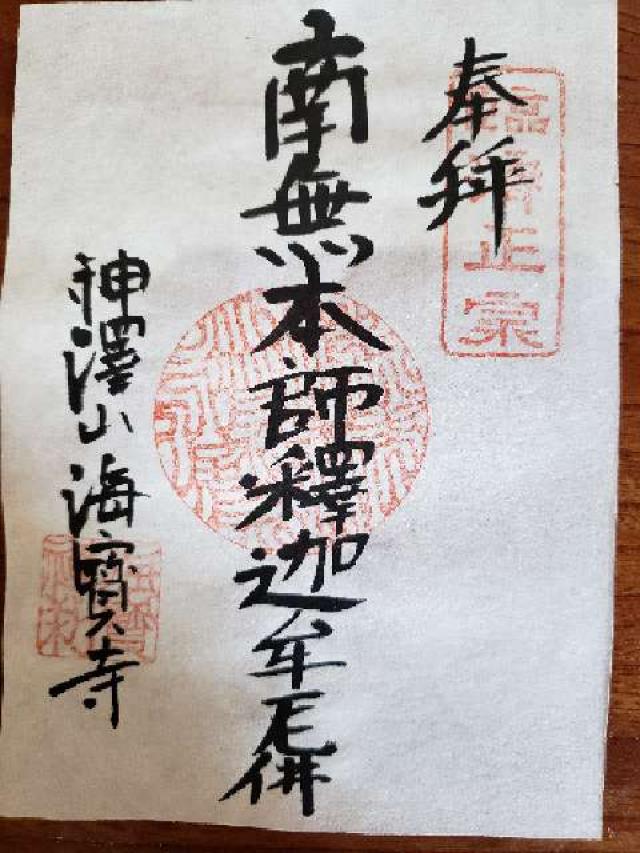 奉拝
臨濟正宗
南無本師釋迦牟尼佛
神澤山海寳寺